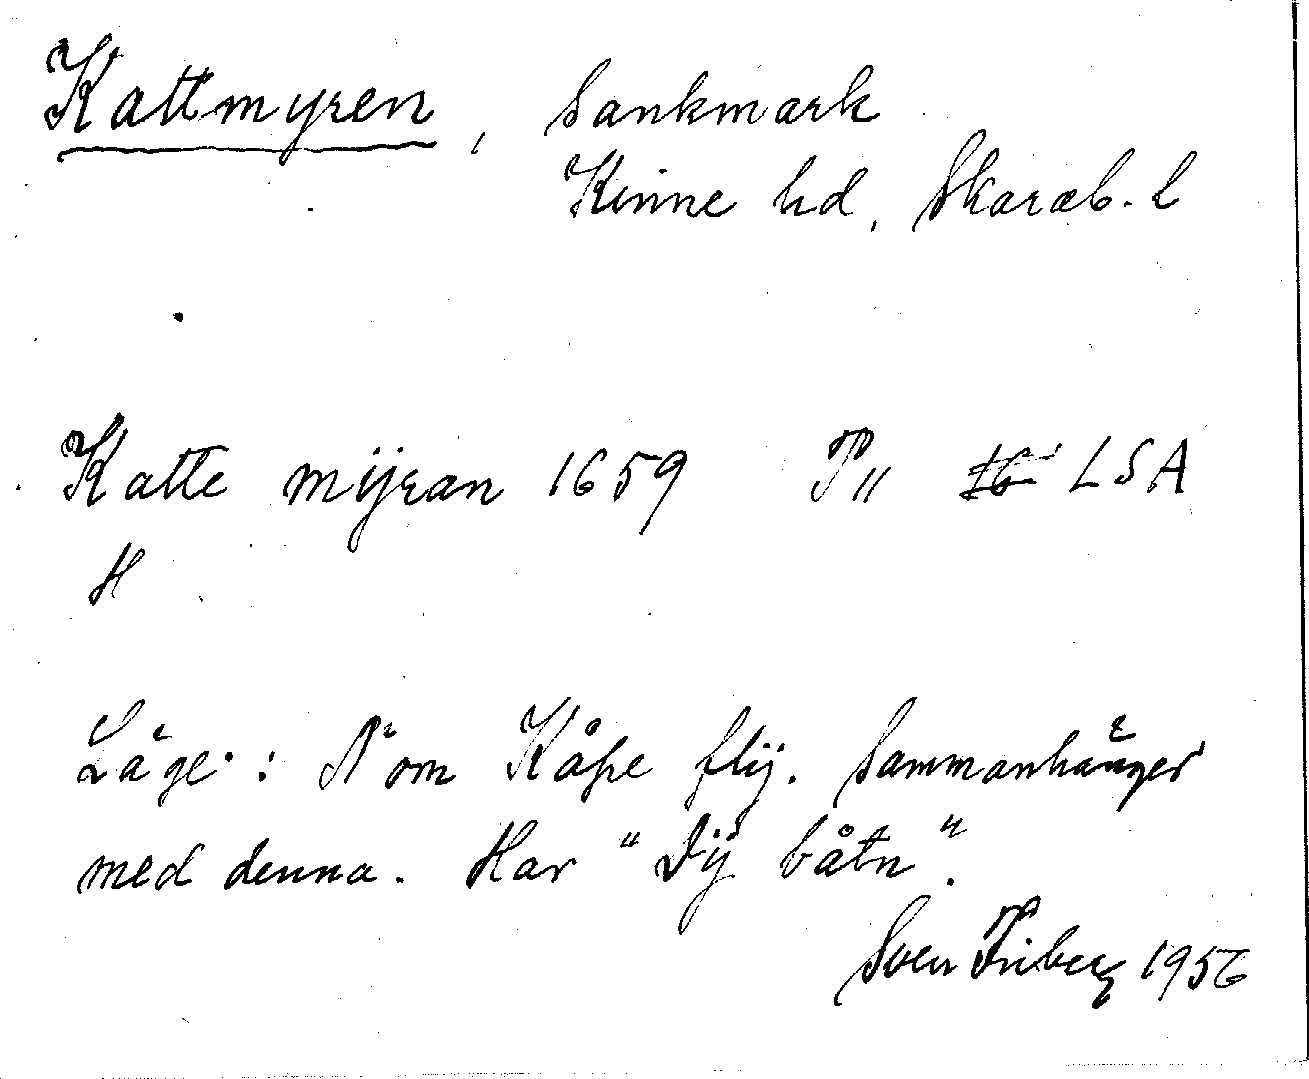 Kattmyren, Sankmark
Kinne hd, Skarab. l
Katte mÿran 1659 P11 LSA
H
Läge: N om Kåpe flÿ. Sammanhänger
med denna. Har "Dÿ båtn".
Sven Friberg 1956